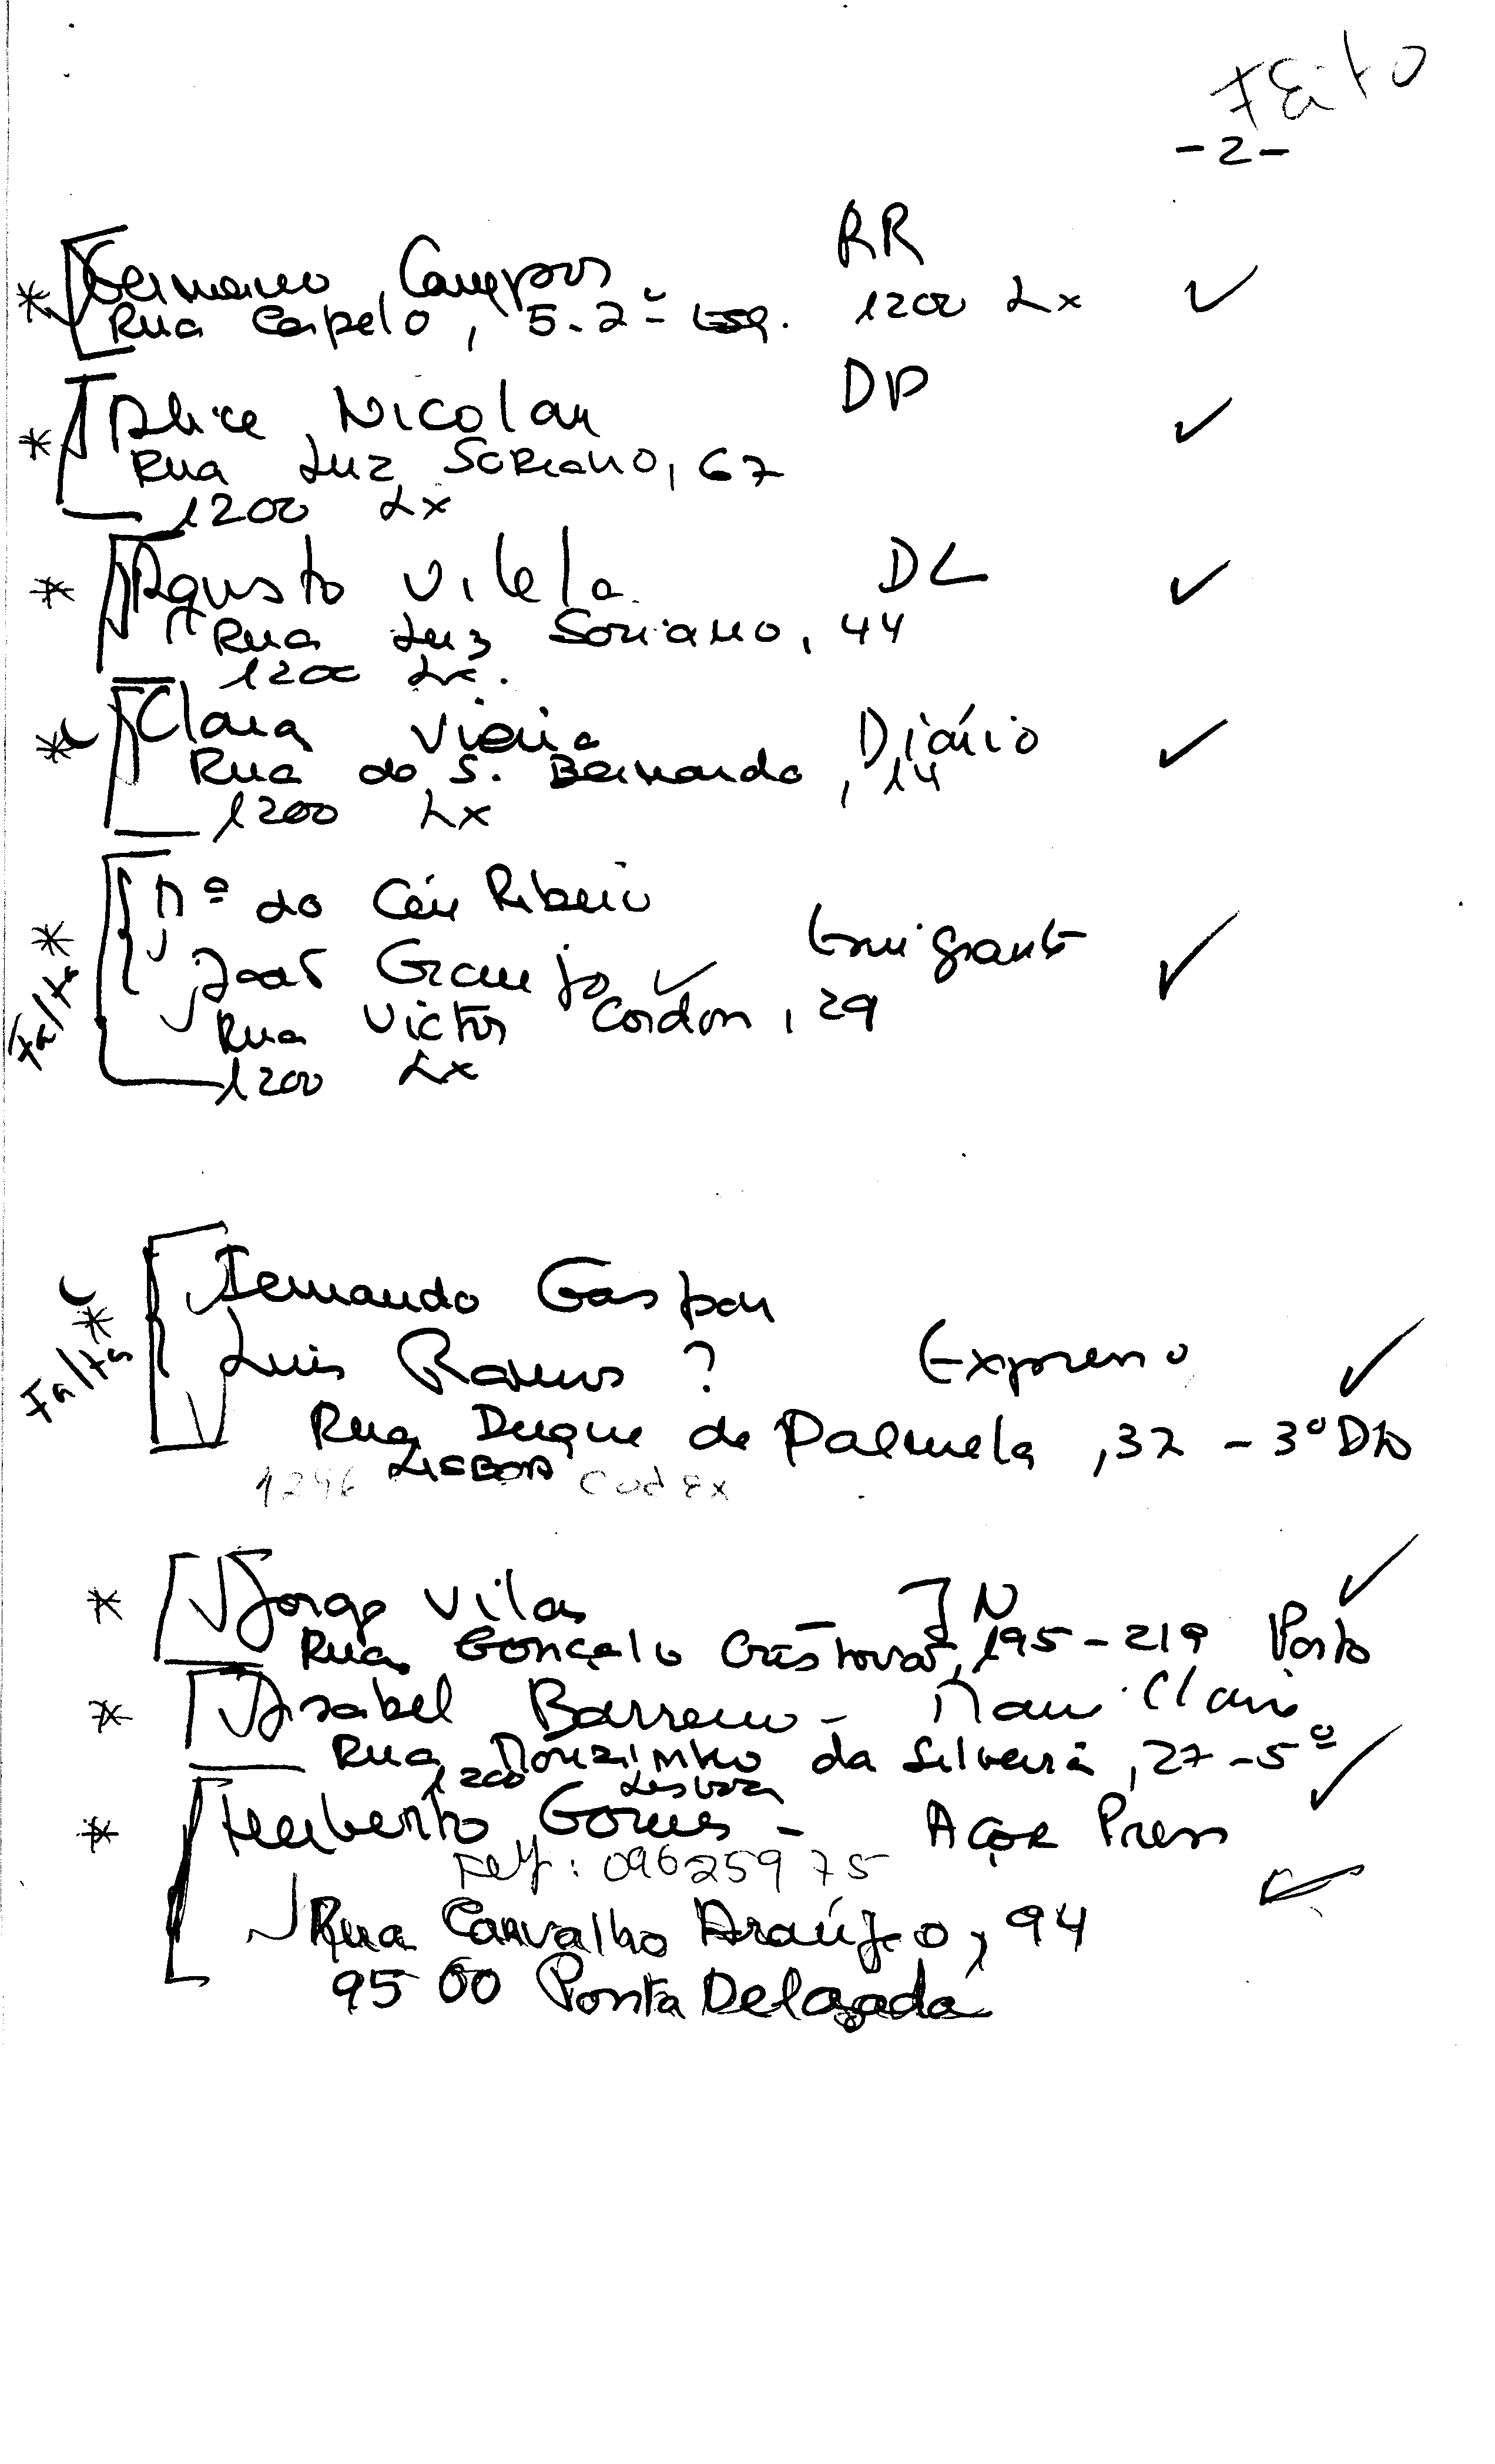 Feito
-2-
Germano Campos RR
Rua Capelo, 5-2º Esq. 1200 Lx
Alice Nicolau DP
Rua Luz Soriano, 67
1200 Lx
Agusto Vilela DL
Rua Luz Soriano, 44
1200 Lx.
Clara Vieira Diário
Rua do S. Bernardo, 14
1200 Lx
Mª do Céu Ribeiro
João Granjo Emigrante
Falta
Rua Victor Cordon, 29
1200 Lx
Fernando Gaspar
Luis Ramos ? Expresso
Falta
Rua Duque de Palmela, 37 - 3º Dto
1296 LISBOA Codex
Jorge Vilas JN
Rua Gonçalo Cristovão, 195-219 Porto
Isabel Barreno - Marie Claire
Rua Mouzinho da Silveira, 27-5º
1200 Lisboa
Humberto Gomes - AÇOR Press
Telf: 09625975
Rua Carvalho Araújo, 94
9500 Ponta Delgada